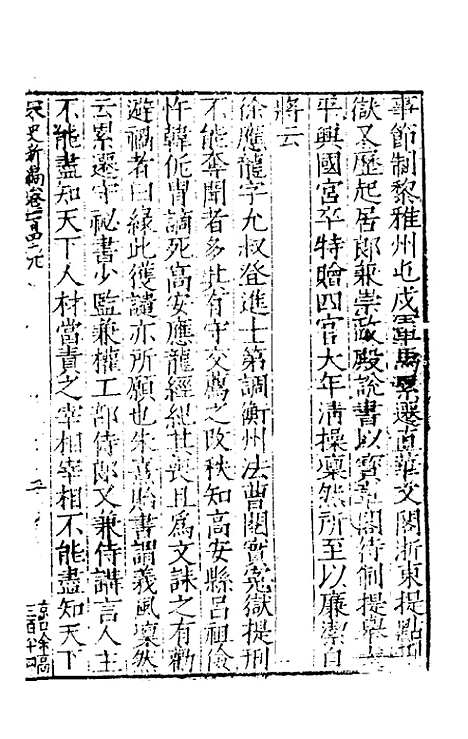 事節制黎雅州屯戍軍馬累遷直華文閣浙東提點刑
獄又歷起居郎兼崇政殿說書以寶章閣待制提舉太
平興國宮卒特贈四官大年清操凜然所至以廉潔自
將云
徐應龍字允叔登進士第調衡州法曹閱實冤獄提刑
不能奪聞者多其有守交薦之改秩知高安縣呂祖儉
忤韓侂胄謫死高安應龍經紀其喪且爲文誄之有勸
避禍者曰緣此獲譴亦所願也朱熹貽書謂義風凜然
云累遷守祕書少監兼權工部侍郎又兼侍講言人主
不能盡知天下人材當責之宰相宰相不能盡知天下
宋史新編卷一百四十九
三百